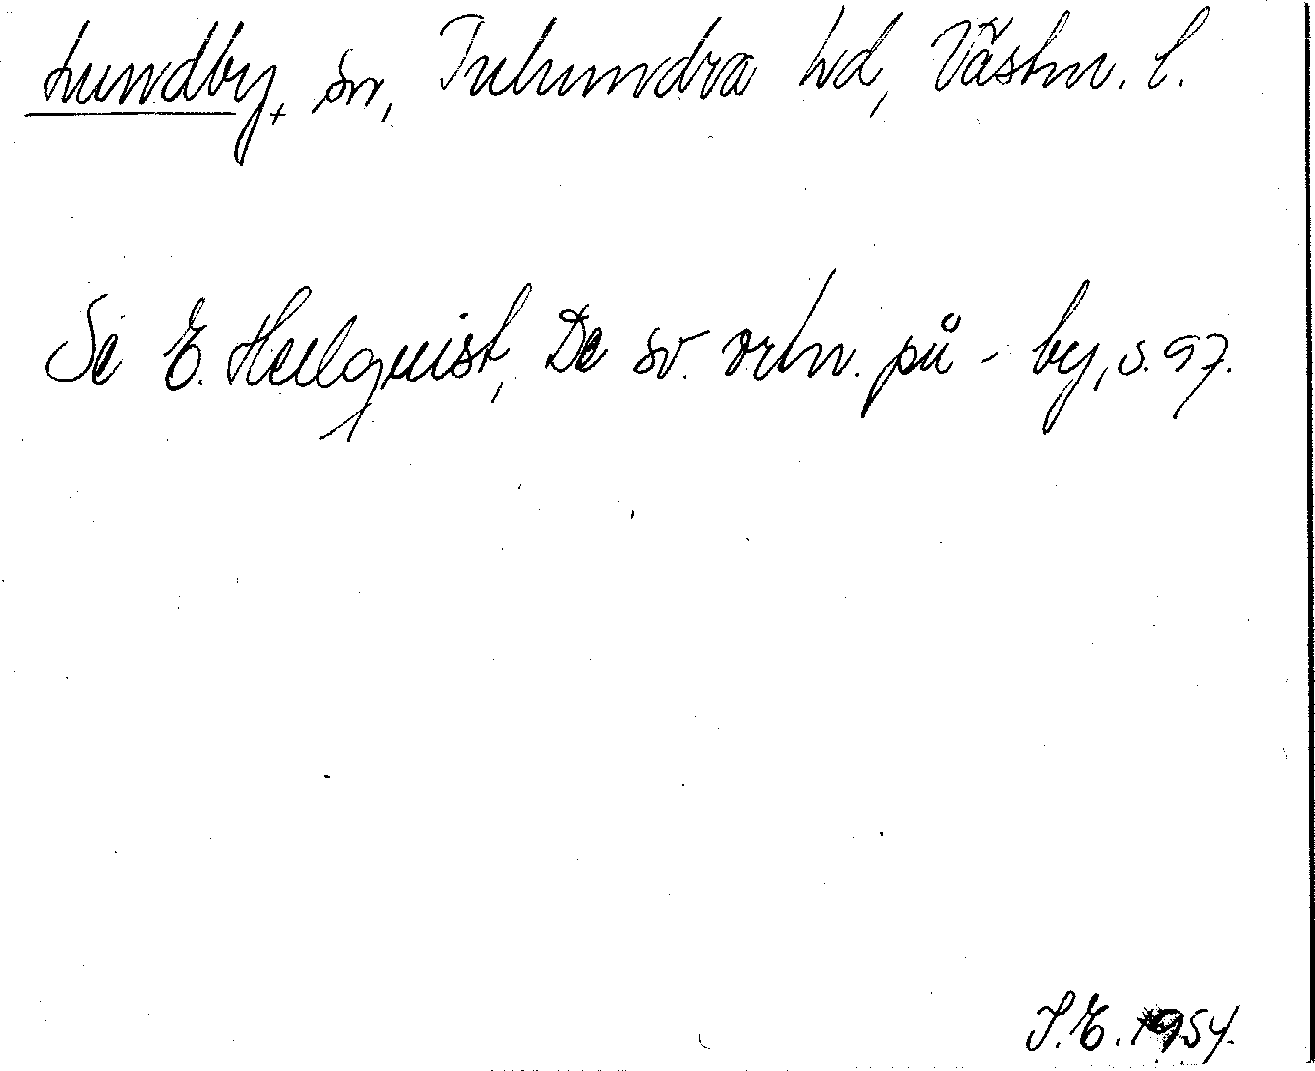 Lundby, sn, Tuhundra hd, Västm. l.
Se E. Hellquist, De sv. ortn. på - by, s. 97.
S.E. 1954.